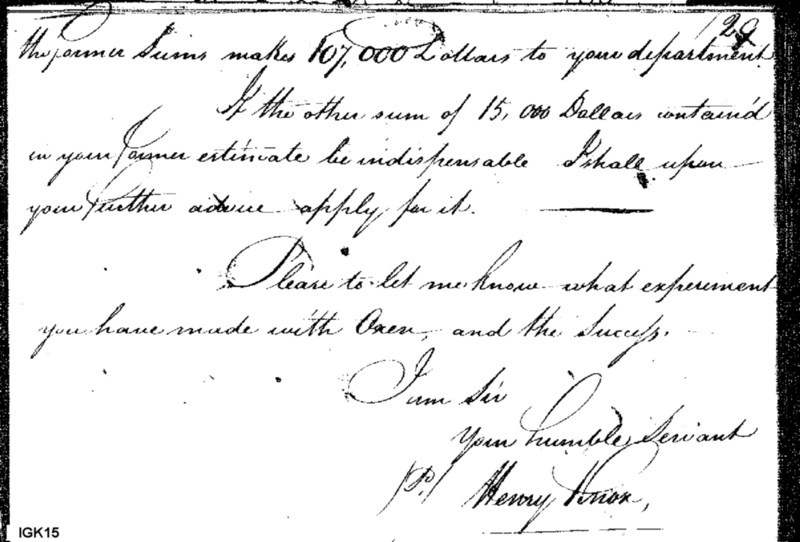 129
the former Sums makes 107,000 Dollars to your department.
If the other sum of 15,000 Dollars contain'd
in your former estimate be indispensable I shall upon
your further advice apply for it.
Please to let me know what experiment
you have made with Oxen, and the Success.
I am Sir
Your humble Servant
Henry Knox,
IGK15